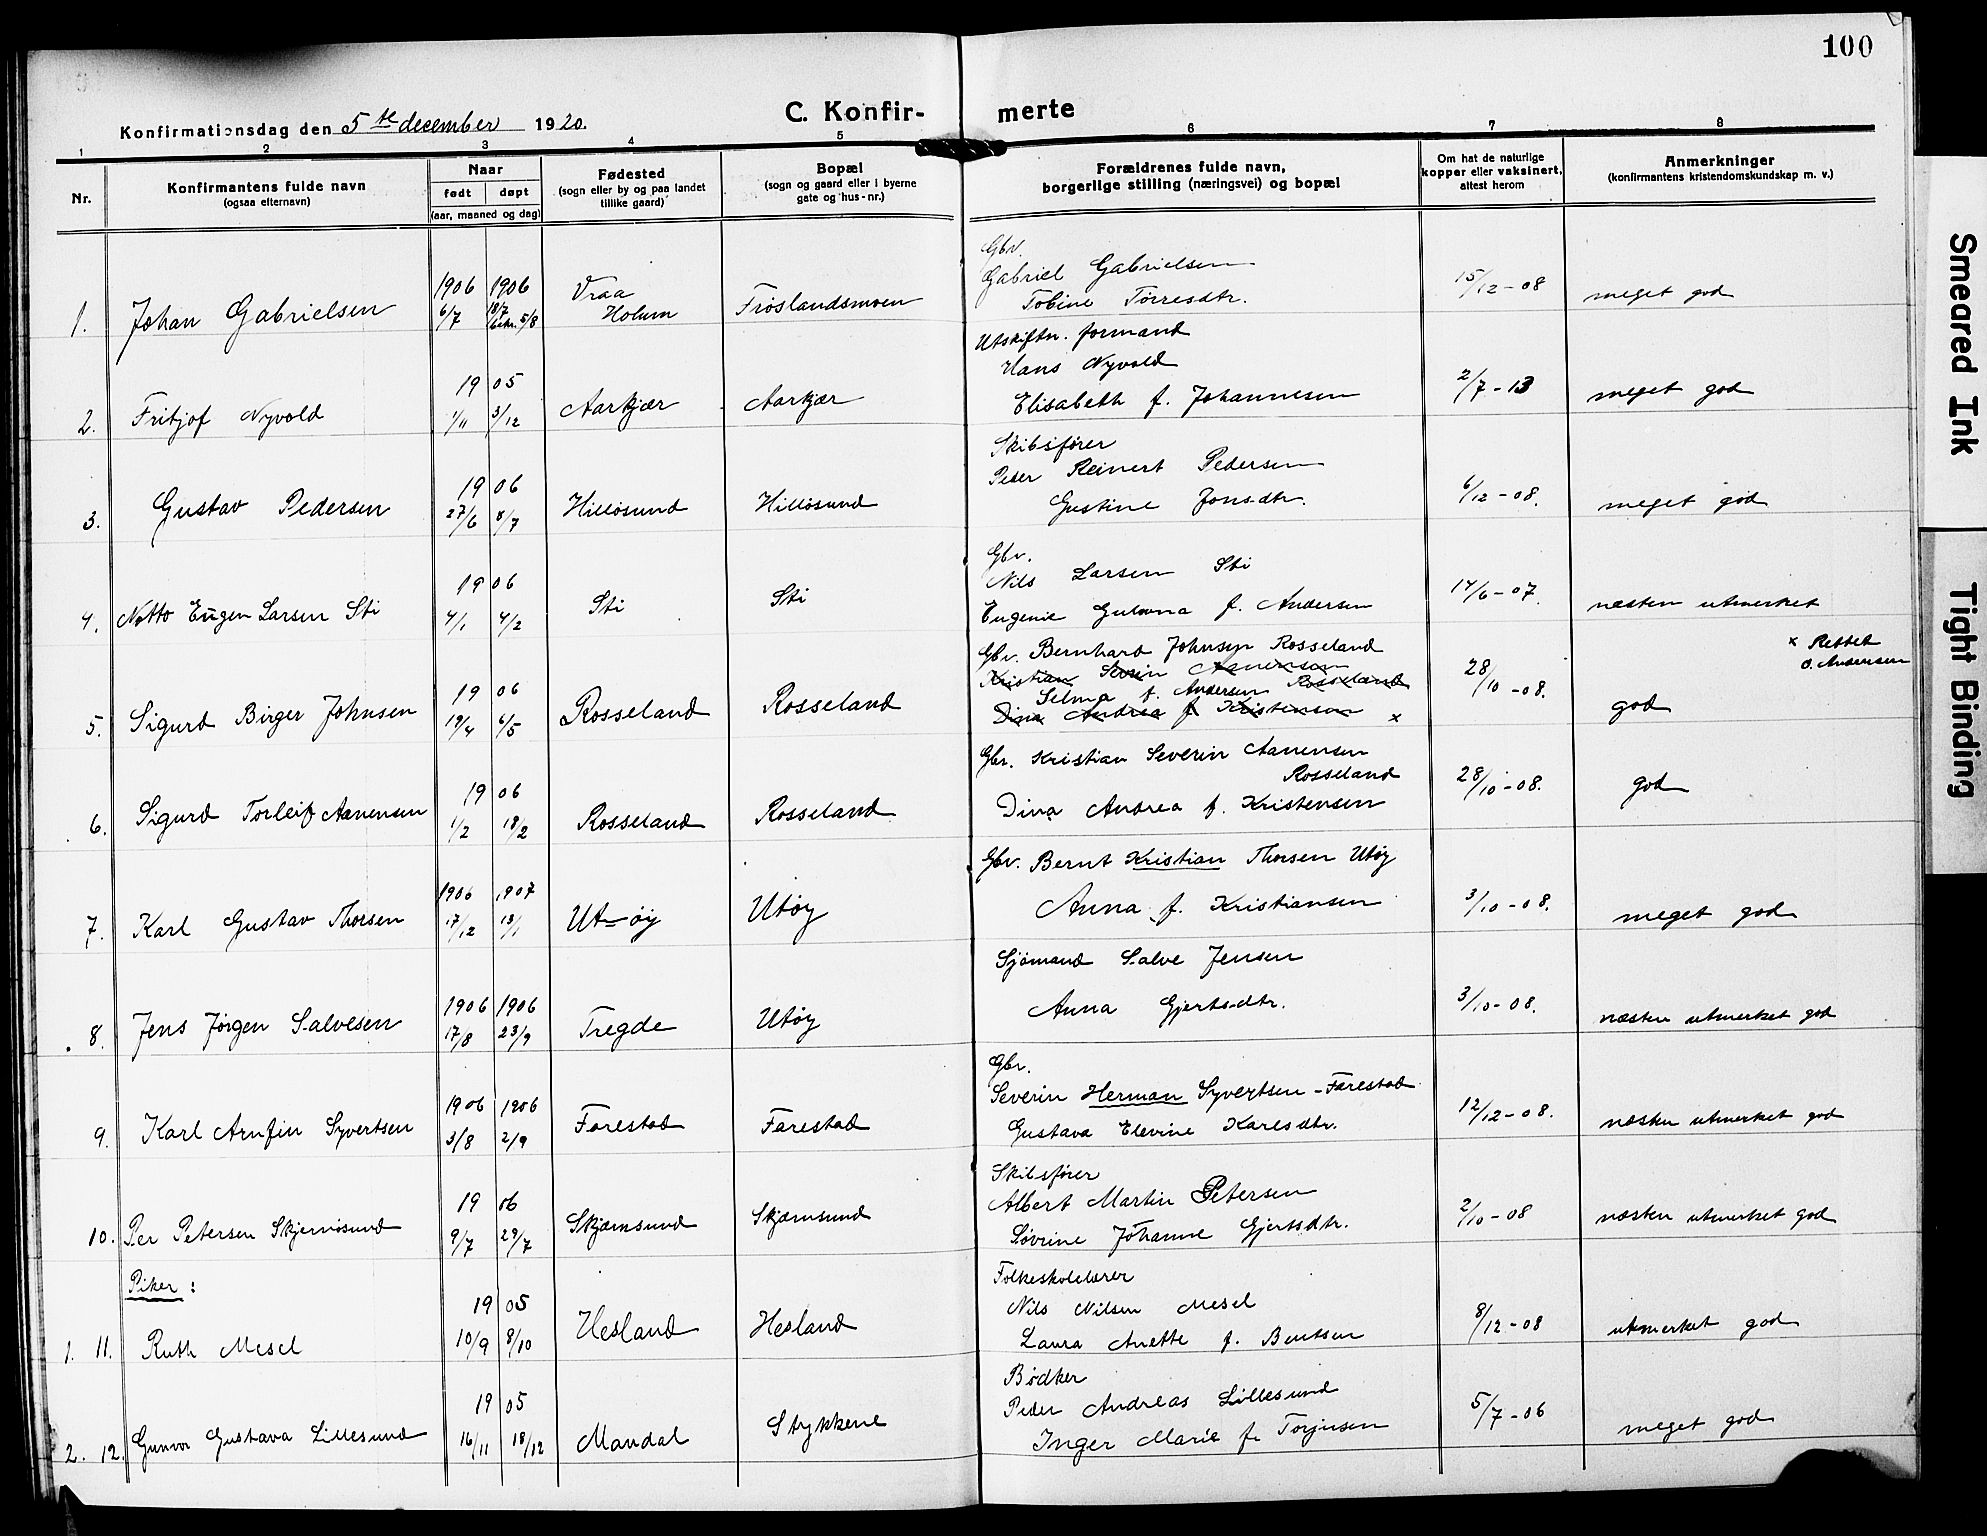 100
Konfirmationsdag den 5te december 1920.
C. Konfir- merte
1 2 3 4 5 6 7 8
Nr.
Konfirmantens fulde navn
(ogsaa efternavn)
Naar
født døpt
(aar, maaned og dag)
Fødested
(sogn eller by og paa landet
tillike gaard)
Bopæl
(sogn og gaard eller i byerne
gate og hus-nr.)
Forældrenes fulde navn,
borgerlige stilling (næringsvei) og bopæl
Om hat de naturlige
kopper eller vaksinert,
attest herom
Anmerkninger
(konfirmantens kristendomskundskap m. v.)
Gbr.
1906 1906 Vraa Gabriel Gabrielsen 15/12-08
1. Johan Gabrielsen 6/7 5/8 Holum Frøslandsmoen Tobine Tørresdtr. meget god
Utskiftn. formand
19 05 Hans Nyvold
2. Fritjof Nyvold 1/11 3/12 Aarkjær Aarkjær Elisabeth f. Johannesen 2/7-13 meget god
Skibsfører
19 06 Peder Reinert Pedersen
3. Gustav Pedersen 27/6 8/7 Hillesund Hillesund Gustine Jonsdtr. 6/12-08. meget god
Gbr.
19 06 Nils Larsen Sti
4. Notto Eugen Larsen Sti 4/1 4/2 Sti Sti Eugenie f. Andersen 14/6-07. næsten utmerket
Gbr. Bernhard Johnsen Rosseland x Rettet
Kristian Severin Aanensen O. Andersen
19 06 Selma f. Andersen Rosseland 28/10-08.
5. Sigurd Birger Johnsen 19/4 6/5 Rosseland Rosseland Dina Andrea f. Kristensen x god
Gbr. Kristian Severin Aanensen
19 06 Rosseland 28/10-08.
6. Sigurd Torleif Aanensen 1/2 18/2 Rosseland Rosseland Dina Andrea f. Kristensen god
Gbr. Bernt Kristian Thorsen Utøy
1906 1907
7. Karl Gustav Thorsen 17/12 13/1 Ut-øy Utøy Anna f. Kristiansen 3/10-08. meget god
Sjømand Salve Jensen
1906 1906
8. Jens Jørgen Salvesen 17/8 23/9 Tregde Utøy Anna Gjertsdtr. 3/10-08. næsten utmerket god
Gbr.
1906 1906 Severin Herman Syvertsen-Farestad
9. Karl Arnfin Syvertsen 3/8 2/9 Farestad Farestad Gustava Elevine Karlsdtr. 12/12-08. næsten utmerket god
Skibsfører
19 06 Albert Martin Petersen
10. Per Petersen Skjernøsund 9/7 29/7 Skjærnsund Skjærnsund Søvrine Johanne Gjertsdtr. 2/10-08 næsten utmerket god
Piker:
Folkeskolelærer
19 05 Nils Nilsen Mesel
1. 11. Ruth Mesel 10/9 8/10 Hesland Hesland Laura Anette f. Bentsen 8/12-08 utmerket god
Bødker
19 05 Peder Andreas Lillesund
2. 12. Gunvor Gustava Lillesund 16/11 18/12 Mandal Stykkene Inger Marie f. Torjusen 5/7-06 meget god
Smeared Ink
Tight Binding